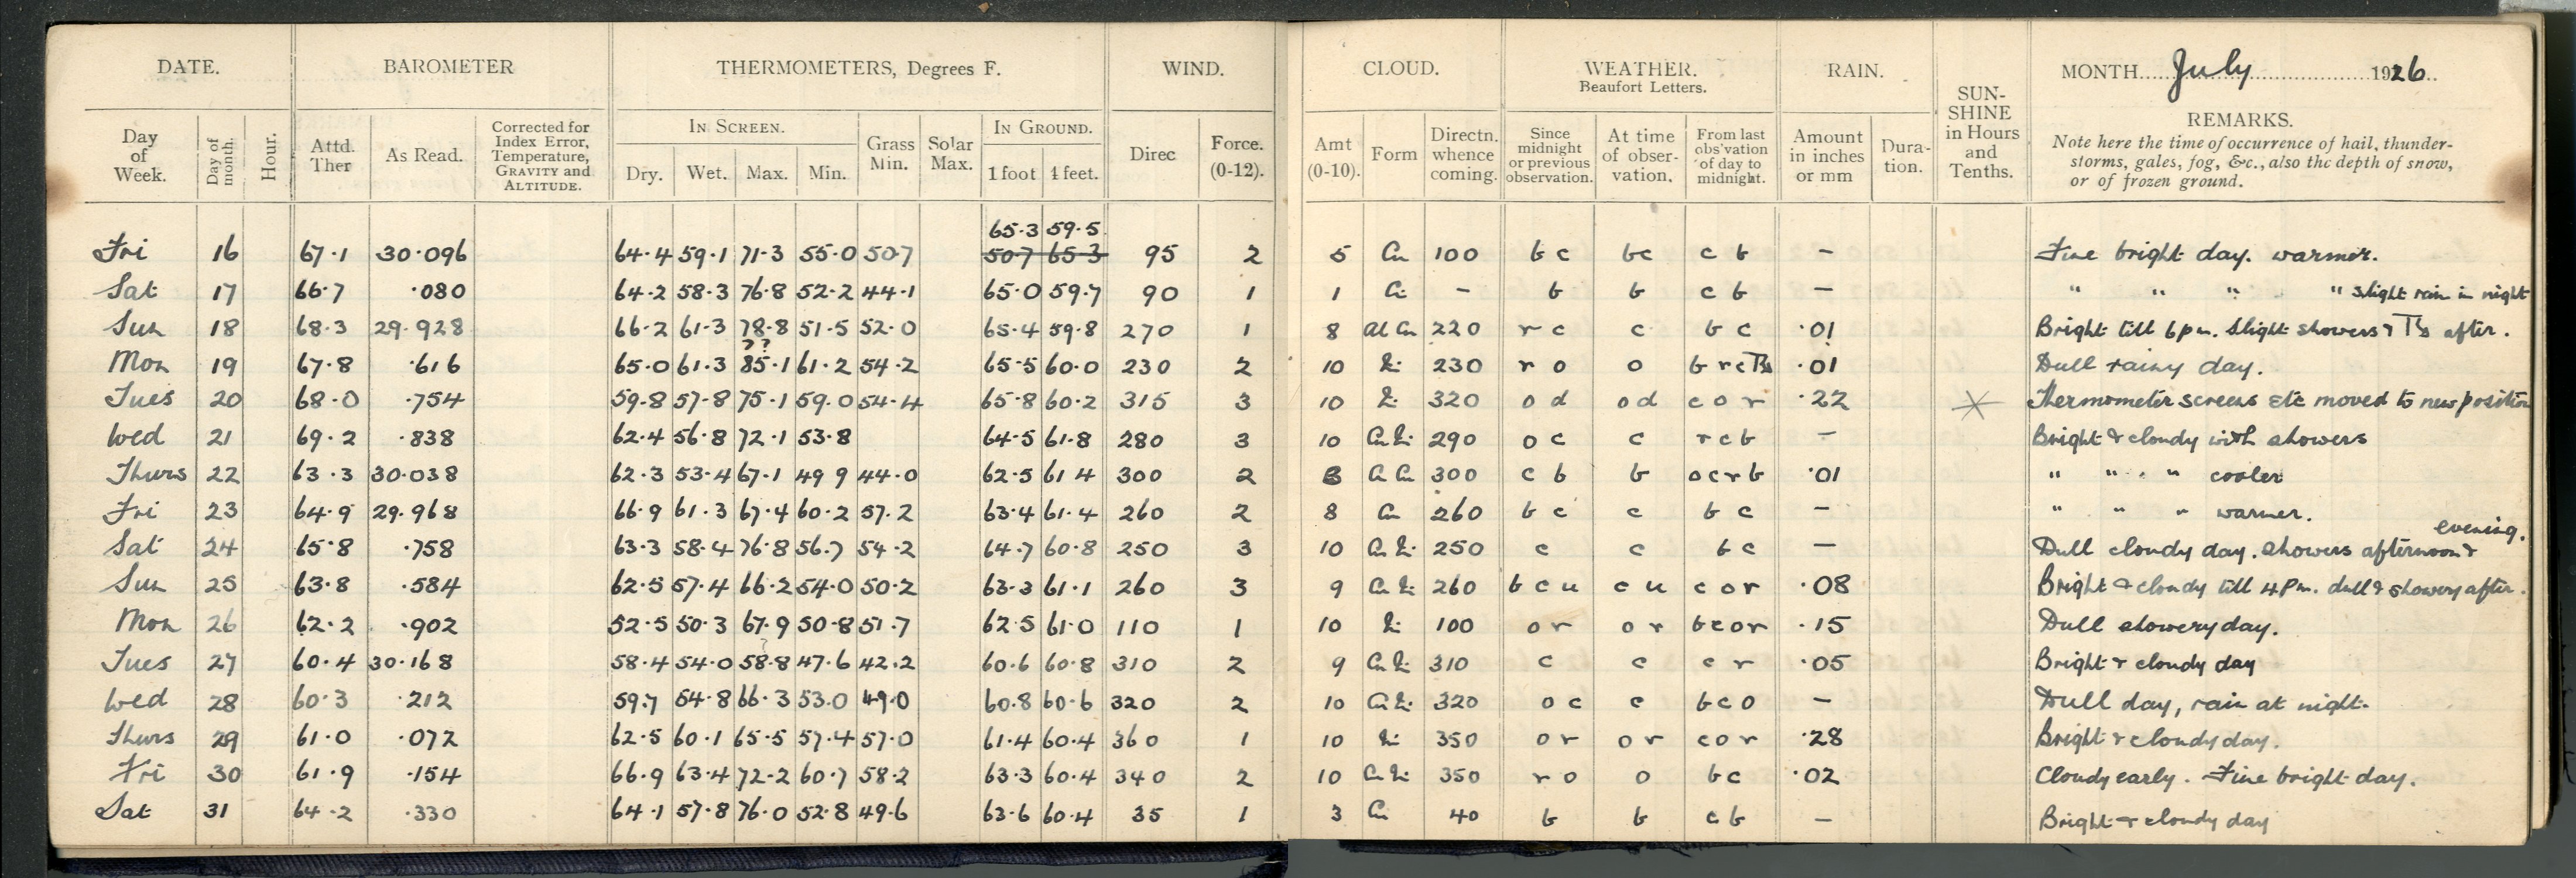 DATE. BAROMETER THERMOMETERS, Degrees F. WIND. CLOUD. WEATHER. Beaufort Letters. RAIN. SUN-SHINE in Hours and Tenths. MONTH July 1926
REMARKS.
Note here the time of occurrence of hail, thunder-
storms, gales, fog, &c., also the depth of snow,
or of frozen ground.
IN SCREEN. IN GROUND.
Day of Week. Day of month. Hour. Attd. Ther As Read. Corrected for Index Error, Temperature, GRAVITY and ALTITUDE. Dry. Wet. Max. Min. Grass Min. Solar Max. 1 foot 4 feet. Direc Force. (0-12). Amt (0-10). Form Directn. whence coming. Since midnight or previous observation. At time of obser-vation. From last obs'vation of day to midnight. Amount in inches or mm Dura-tion.
65.3 59.5
Fri 16 67.1 30.096 64.4 59.1 71.3 55.0 50.7 50.7 65.3 95 2 5 Cu 100 bc bc cb — Fine bright day. warmer.
Sat 17 66.7 .080 64.2 58.3 76.8 52.2 44.1 65.0 59.7 90 1 1 Ci — b b cb — " " " " slight rain in night
Sun 18 68.3 29.928 66.2 61.3 78.8 51.5 52.0 65.4 59.8 270 1 8 Al Cu 220 rc c bc .01 Bright till 6pm. Slight showers & Ts after.
??
Mon 19 67.8 .616 65.0 61.3 85.1 61.2 54.2 65.5 60.0 230 2 10 Ni 230 ro o brcTs .01 Dull rainy day.
Tues 20 68.0 .754 59.8 57.8 75.1 59.0 54.4 65.8 60.2 315 3 10 Ni 320 od od cor .22 Thermometer screens etc moved to new position
Wed 21 69.2 .838 62.4 56.8 72.1 53.8 64.5 61.8 280 3 10 Cu Ni 290 oc c rcb — Bright & cloudy with showers
Thurs 22 63.3 30.038 62.3 53.4 67.1 49 9 44.0 62.5 61 4 300 2 Cu 300 cb b ocrb .01 " " " cooler
Fri 23 64.9 29.968 66.9 61.3 67.4 60.2 57.2 63.4 61.4 260 2 8 Cu 260 bc c bc — " " " warmer.
Sat 24 65.8 .758 63.3 58.4 76.8 56.7 54.2 64.7 60.8 250 3 10 Cu Ni 250 c c bc — Dull cloudy day. showers afternoon & evening.
Sun 25 63.8 .584 62.5 57.4 66.2 54.0 50.2 63.3 61.1 260 3 9 Cu Ni 260 bcu cu cor .08 Bright & cloudy till 4Pm. dull & showery after.
Mon 26 62.2 .902 52.5 50.3 67.9 50.8 51.7 62.5 61.0 110 1 10 Ni 100 or or bcor .15 Dull showery day.
?
Tues 27 60.4 30.168 58.4 54.0 58.8 47.6 42.2 60.6 60.8 310 2 9 Cu Ni 310 c c cr .05 Bright & cloudy day
Wed 28 60.3 .212 59.7 54.8 66.3 53.0 49.0 60.8 60.6 320 2 10 Cu Ni 320 oc c bco — Dull day, rain at night.
Thurs 29 61.0 .072 62.5 60.1 65.5 57.4 57.0 61.4 60.4 360 1 10 Ni 350 or or cor .28 Bright & cloudy day.
Fri 30 61.9 .154 66.9 63.4 72.2 60.7 58.2 63.3 60.4 340 2 10 Cu Ni 350 ro o bc .02 Cloudy early. Fine bright day.
Sat 31 64.2 .330 64.1 57.8 76.0 52.8 49.6 63.6 60.4 35 1 3 Cu 40 b b cb — Bright & cloudy day